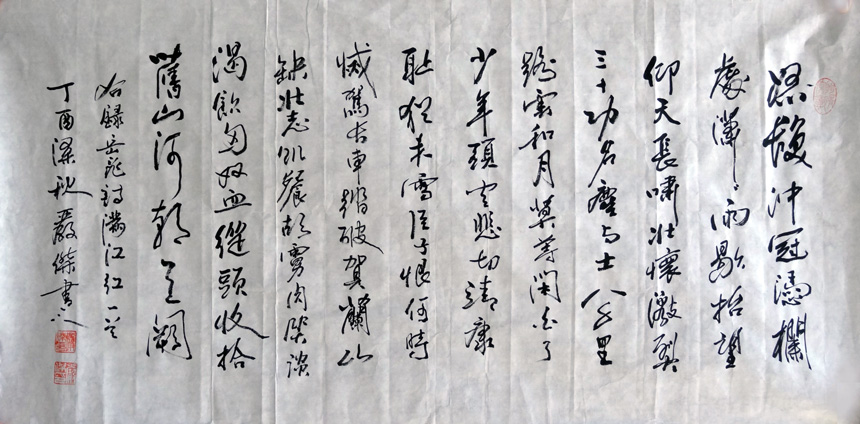 怒髮冲冠憑欄
處瀟〻雨歇抬望
仰天長嘯壯懷激烈
三十功名塵与土八千里
路雲和月莫等閑白了
少年頭空悲切靖康
耻猶未雪臣子恨何時
滅駕長車踏破賀蘭山
缺壯志飢餐胡虜肉笑談
渴飲匈奴血從頭收拾
舊山河朝天闕
右録岳飛詩滿江紅一首
丁酉深秋嚴傑書